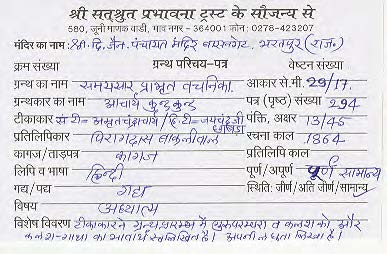 श्री सत्श्रुत प्रभावना ट्रस्ट के सौजन्य से
580, जूनी माणक वाडी, भाव नगर - 364001 फोन : 0278-423207
मंदिर का नाम : श्री. दि. जैन. पंचायत मंदिर भरतपुर (राज.)
क्रम संख्या ग्रन्थ परिचय-पत्र वेष्टन संख्या
ग्रन्थ का नाम समयसार प्राभृत वचनिका. आकार से.मी. 29/17.
ग्रन्थकार का नाम आचार्य कुन्दकुन्द पत्र (पृष्ठ) संख्या 294
टीकाकार सं टी = अमृतचंद्राचार्य / हि. टी = जयचंदजी छाबड़ा पंक्ति, अक्षर 13/45
प्रतिलिपिकार विरागदास बाकलीवाल रचना काल 1864
कागज/ताड़पत्र कागज प्रतिलिपि काल
लिपि व भाषा हिन्दी पूर्ण/अपूर्ण पूर्ण सामान्य
गद्य/पद्य गद्य स्थिति: जीर्ण/अति जीर्ण/सामान्य
विषय अध्यात्म
विशेष विवरण टीकाकारने ग्रन्थ प्रारम्भ में गुरुपरम्परा व कलश को, और
कलश-गाथा का भावार्थ स्वलिखित है। अपनी लघुता लिखा है।